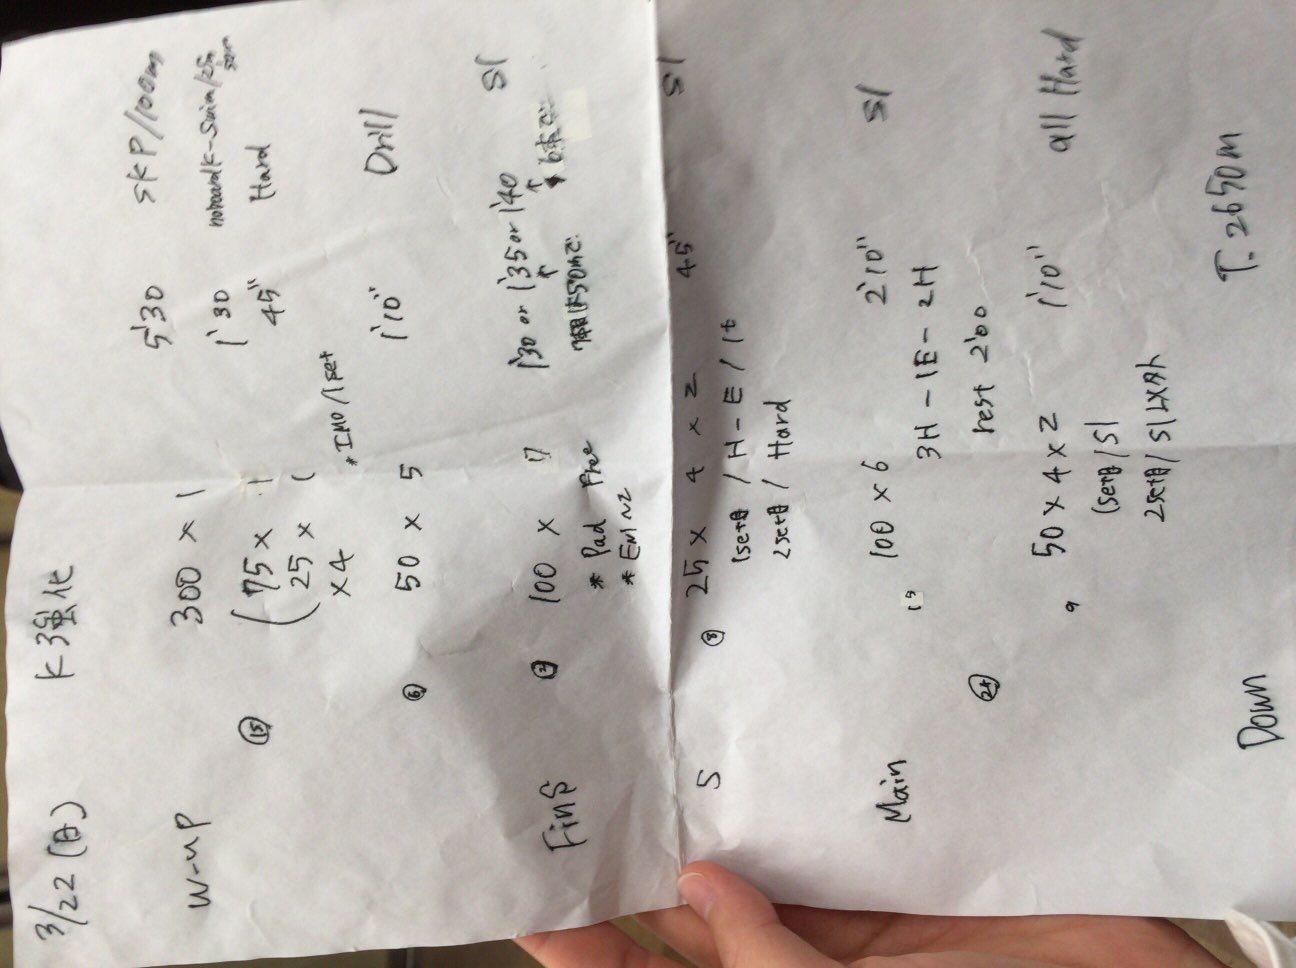 3/22 (日) K強化
W-up 300 × 1 5'30 SKP/100m
⑮ ( 75 × 1 1'30 noboardK-Swim/25m
25 × 1 45" Hard
×4 *IMO/1set
⑥ 50 × 5 1'10" Drill
FinS 100 × 7 1'30 or 1'35 or 1'40 S1
* Pad Free
* EN1~2
S ⑧ 25 × 4 × 2 45" S1
1set目 / H-E / 1t
2set目 / Hard
Main 100 × 6 2'10" S1
15 3H-1E-2H
㉔ rest 2'00
9 50 × 4 × 2 1'10" all Hard
1set目/S1
2set目/S1以外
Down T. 2650m